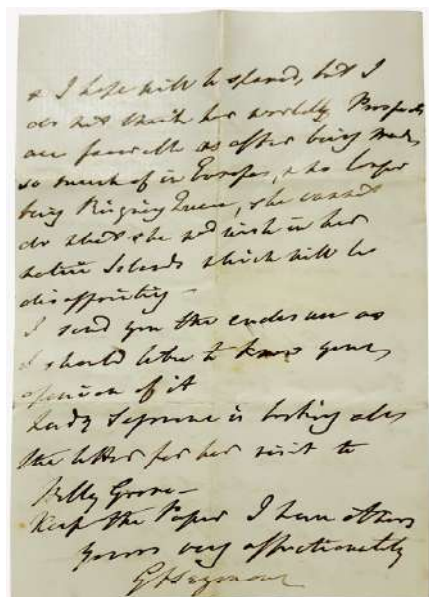 & I hope will be spared, but I
do not think her worldly Prospects
are favorable as after being made
so much of in Europe, & no longer
being Reigning Queen, she cannot
do what she wd wish in her
native Islands which will be
disappointing –
I send you the enclosure as
I should like to know your
opinion of it
Lady Seymour is looking all
the better for her visit to
Holly Grove –
Keep the Paper I have others
yours very affectionately
GHSeymour